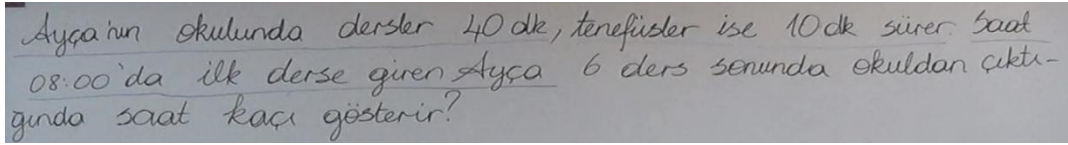 Ayça'nın okulunda dersler 40 dk, tenefüsler ise 10 dk sürer. Saat
08:00'da ilk derse giren Ayça 6 ders sonunda okuldan çıktı-
ğında saat kaçı gösterir?